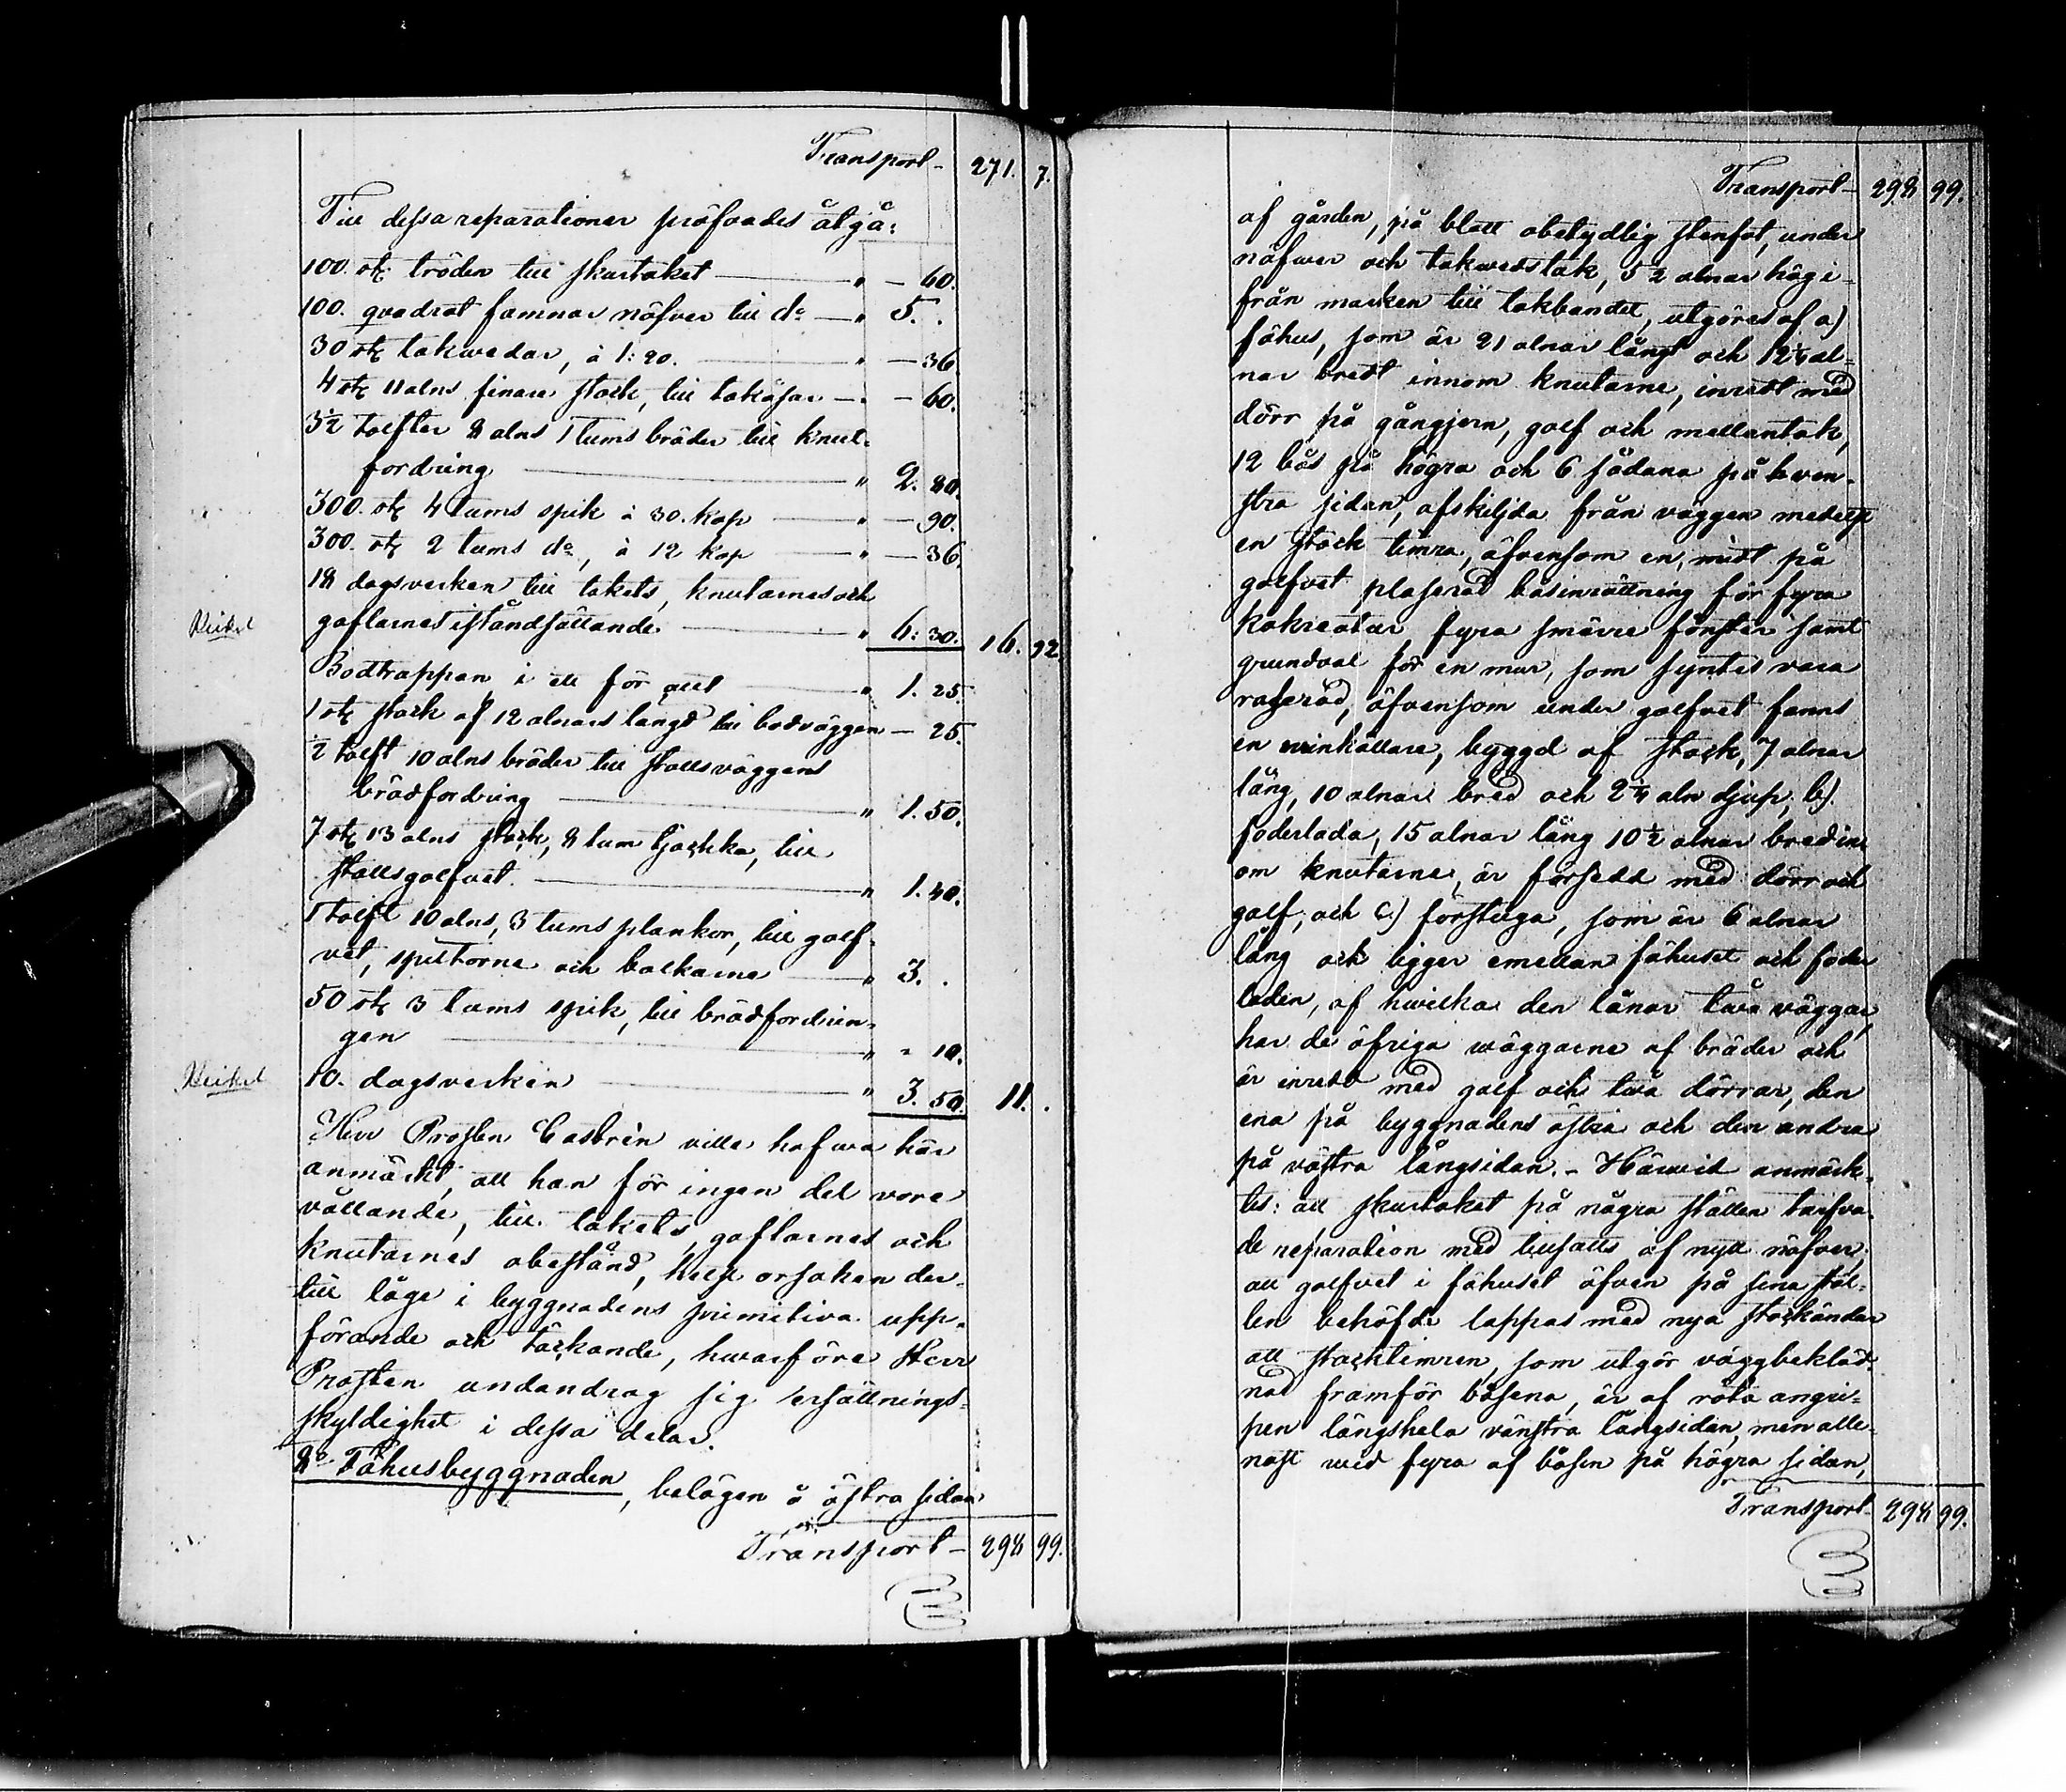 Transport – 271. 7.
Till dessa reparationer pröfvades åtgå:
100. st. tröden till skurtaket — " — 60.
100. qvadrat famnar näfver till do — " 5. .
30 st takvedar, à 1: 20. — " — 36
4 st 11 alns finare stock, till takåsar — " — 60.
3½ tolfter 8 alns 1 tums bräder till knut-
fordring — " 2. 80.
300. st 4 tums spik à 30. kop — " — 90.
300. st 2 tums do, à 12 kop — " — 36.
18 dagsverken till takets, knutarnes och
gaflarnes iståndsättande — " 6: 30. 16. 92.
Bodtrappan i ett för allt — " 1. 25.
1 st stock af 12 alnars längd till bodväggen — 25.
½ tolft 10 alns bräder till stallsväggens
brädfordring — " 1. 50.
7 st 13 alns stock, 8 tum tjocka, till
stallsgolfvet. — " 1. 40.
1 tolft 10 alns, 3 tums plankor, till golf-
vet, spiltorne och balkarne — " 3. .
50 st 3 tums spik, till brädfordrin-
gen — " - 10.
10. dagsverken — " 3. 50. 11. .
Herr Prosten Castrén ville hafwa här
anmärkt, att han för ingen del vore
vållande, till takets, gaflarnes och
knutarnes obestånd, helst orsaken der-
till låge i byggnadens primitiva upp-
förande och täckande, hwarföre Herr
Prosten undandrog sig ersättnings-
skyldighet i dessa delar.
8o Fähusbyggnaden, belägen å östra sidan
Transport – 298 99.
Transport – 298 99.
af gården, på blott obetydlig stenfot, under
näfwer och takwedstak, 5½ alnar hög i-
från marken till takbandet, utgöres af a)
fähus, som är 21 alnar långt och 12¼ al-
nar bredt innom knutarne, inredt med
dörr på gångjern, golf och mellantak,
12 bås på högra och 6 sådana på ven-
stra sidan, afskiljda från väggen medelst
en stock timra, äfvensom en, midt på
golfvet plaserad båsinrättning för fyra
kokreatur, fyra smärre fönster samt
grundval för en mur, som syntes vara
raserad, äfvensom under golfvet fanns
en urinkällare, byggd af stock, 7 alnar
lång, 10 alnar bred och 2¼ aln djup; b).
foderlada, 15 alnar lång 10½ alnar bred in-
om knutarne, är försedd med dörr och
golf; och c.) förstuga, som är 6 alnar
lång och ligger emellan fähuset och foder
laden, af hwilka den lånar två väggar,
har de öfriga wäggarne af bräder och
är inredd med golf och två dörrar, den
ena på byggnadens östra och den andra
på västra långsidan. – Härvid anmärk-
tes: att skurtaket på några ställen tarfva-
de reparation med tillsatts af nytt näfver,
att golfvet i fähuset äfven på sina stäl-
len behöfde lappas med nya stockändar
att stocktimren, som utgör väggbekläd-
nad framför båsena, är af röta angri-
pen längshela vänstra långsidan, men alle-
nast wid fyra af båsen på högra sidan,
Transport – 298 99.